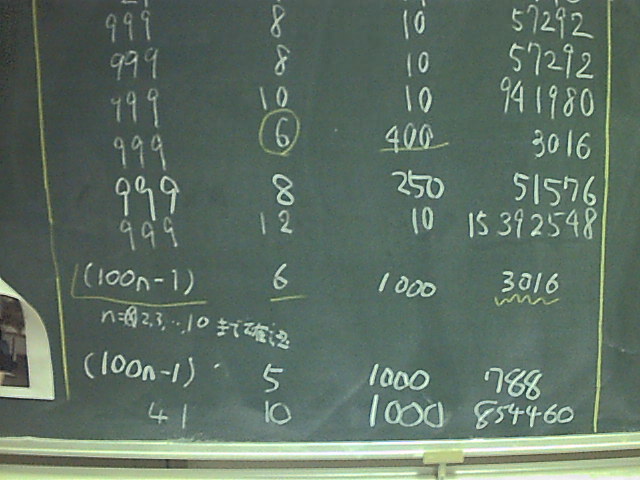 999 8 10 57292
999 8 10 57292
999 10 10 941980
999 6 400 3016
999 8 250 51576
999 12 10 15392548
(100n-1) 6 1000 3016
2,3,…,10 まで確認
(100n-1) 5 1000 788
41 10 1000 854460